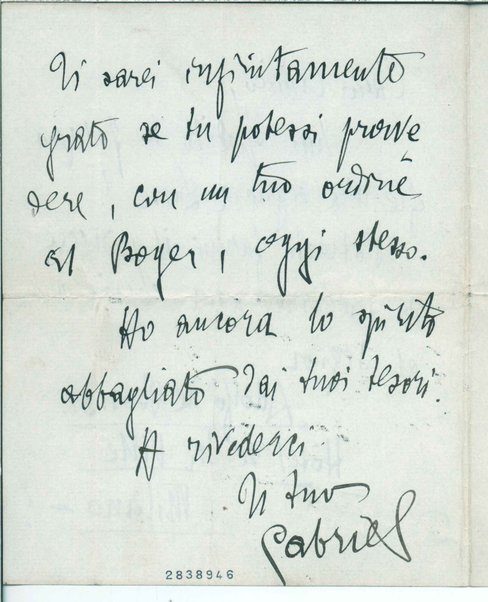 Ti sarei infinitamente
grato se tu potessi prove
dere, con un tuo ordine
al Boger, oggi stesso.
Ho ancora lo spirito
abbagliato dai tuoi tesori.
A rivederci
Il tuo
Gabriel
2838946